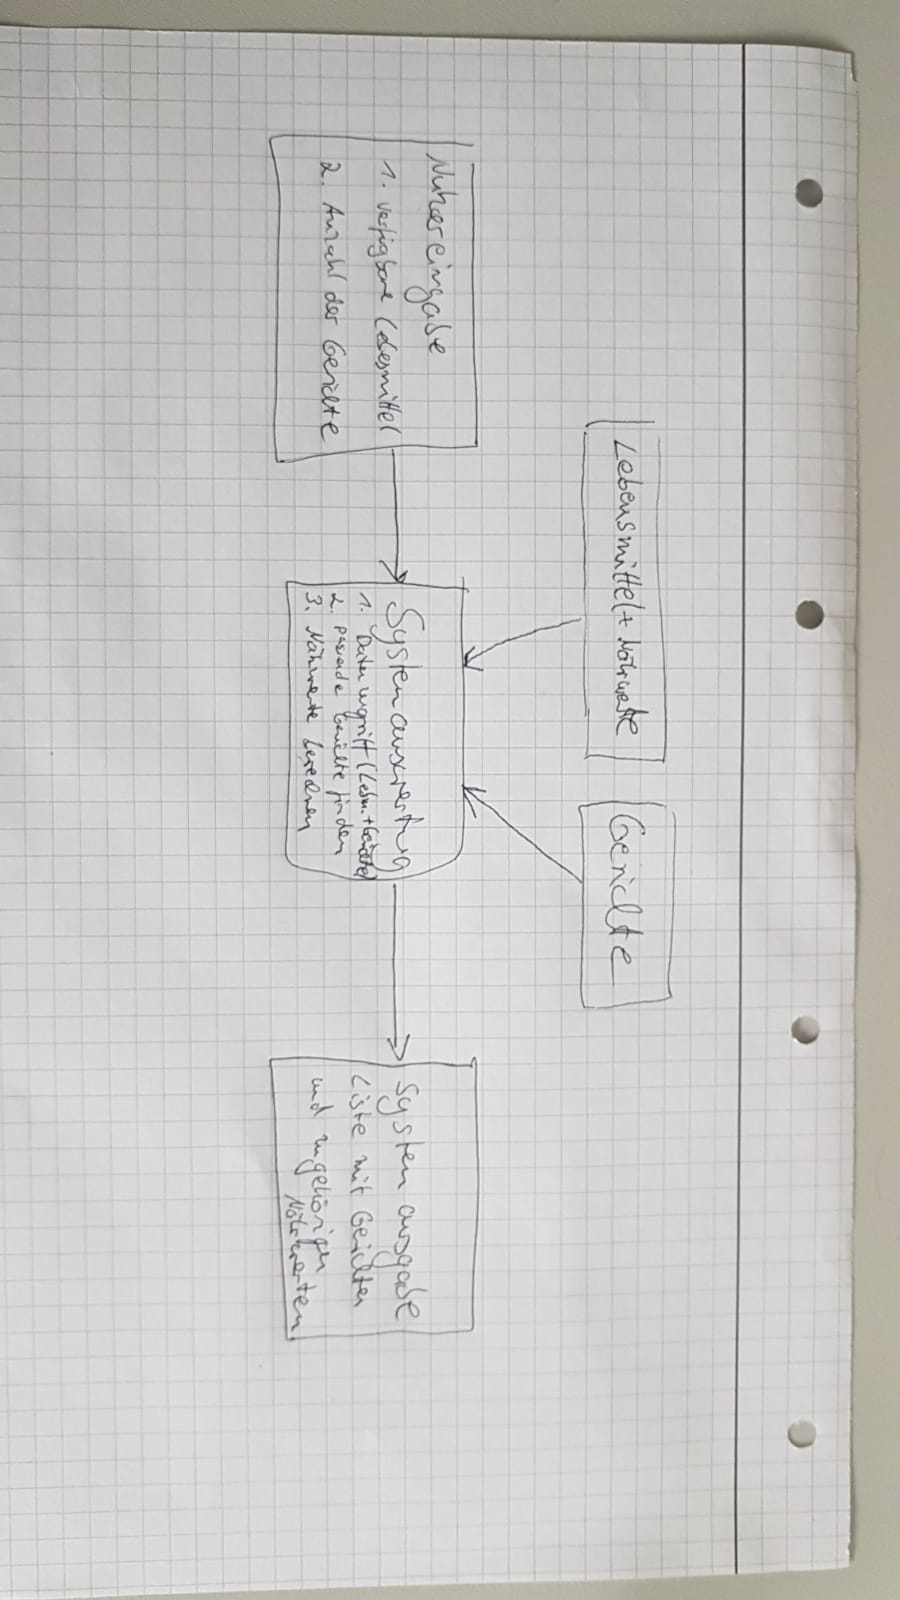 Lebensmittel + Nährwerte
Gerichte
Nutzereingabe
1. verfügbare Lebesmittel
2. Anzahl der Gerichte
Systemauswertung
1. Datenzugriff (Lebm. + Gerichte)
2. passende Gerichte finden
3. Nährwerte berechnen
Systemausgabe
Liste mit Gerichten
und zugehörigen
Nährwerten